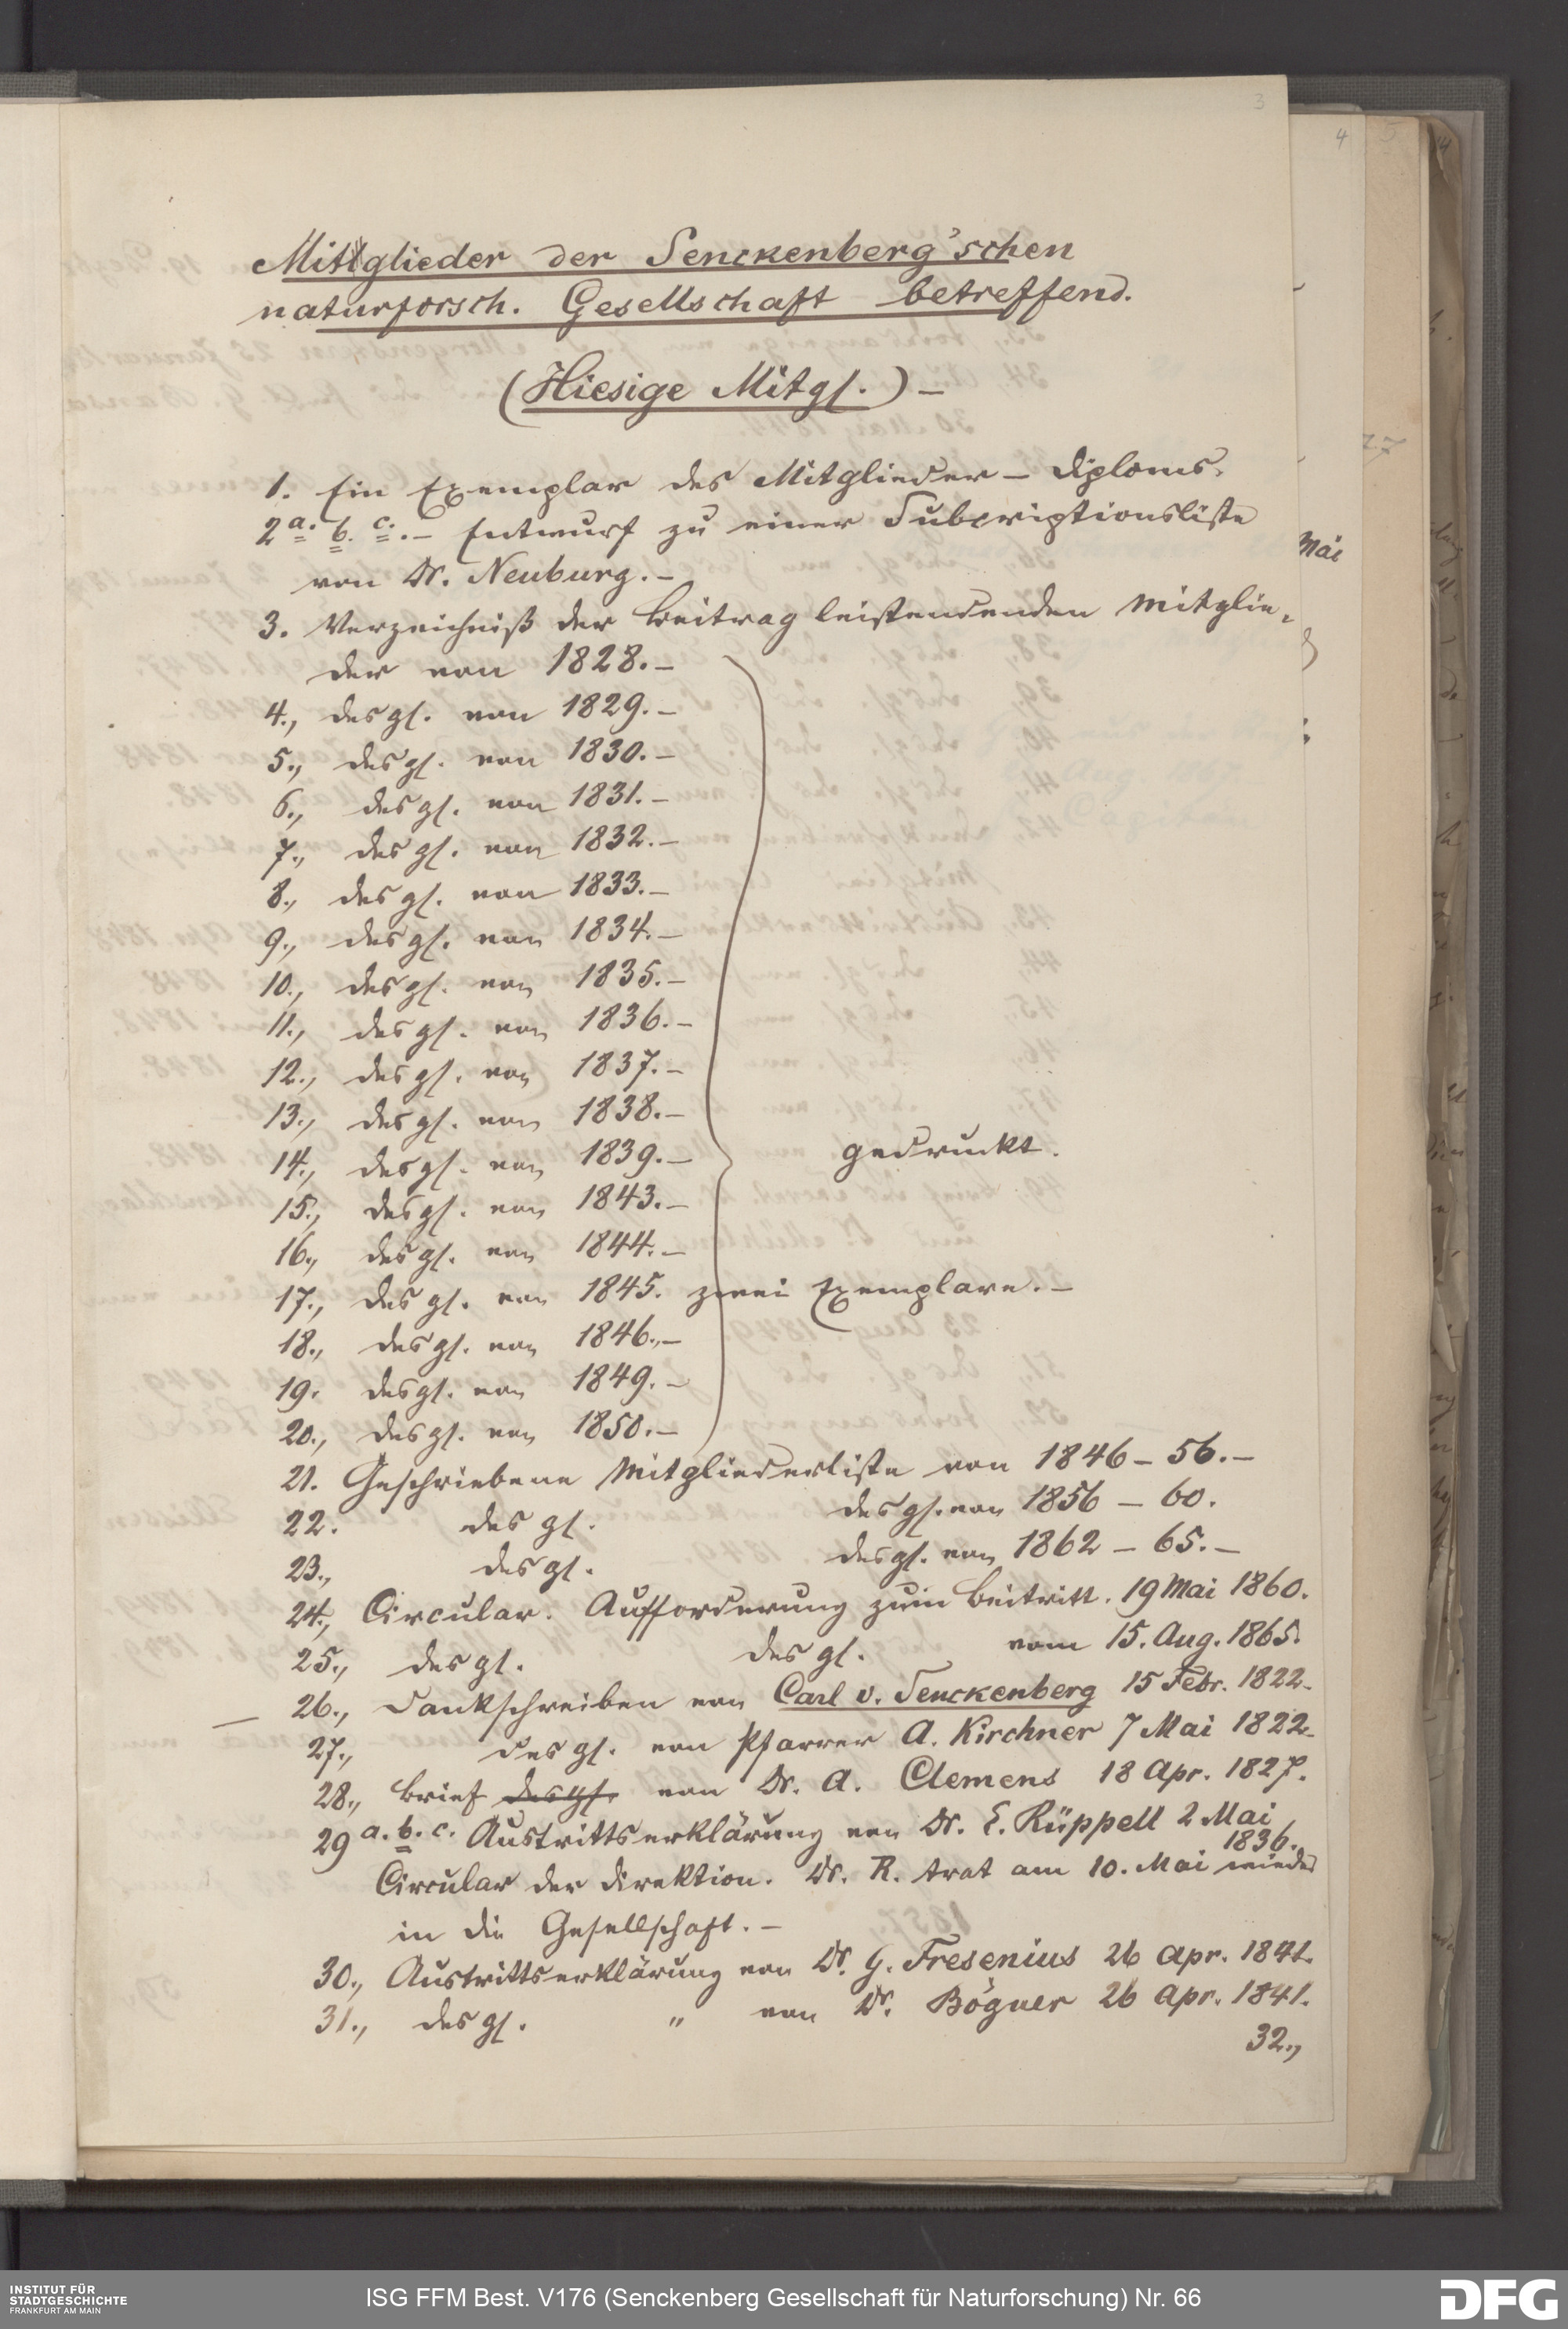 3
4
5
14
Mitglieder der Senckenberg'schen
naturforsch. Gesellschaft betreffend.
(Hiesige Mitgl.) –
1. Ein Exemplar des Mitglieder – Diploms.
2 a. b. c. – Entwurf zu einer Subcriptionsliste
von Dr. Neuburg. –
3. Verzeichniß der Beitrag leistendenden Mitglie-
der von 1828. –
4., desgl. von 1829. –
5., desgl. von 1830. –
6., desgl. von 1831. –
7., desgl. von 1832. –
8., desgl. von 1833. –
9., desgl. von 1834. –
10., desgl. von 1835. –
11., desgl. von 1836. –
12., desgl. von 1837. –
13., desgl. von 1838. –
14., desgl. von 1839. – gedruckt.
15., desgl. von 1843. –
16., desgl. von 1844. –
17., desgl. von 1845. zwei Exemplare. –
18., desgl. von 1846. –
19. desgl. von 1849. –
20., desgl. von 1850. –
21. Geschriebene Mitgliederliste von 1846 – 56. –
22. desgl. desgl. von 1856 – 60.
23., desgl. desgl. von 1862 – 65. –
24., Circular. Aufforderung zum Beitritt. 19 Mai 1860.
25., desgl. desgl. vom 15. Aug. 1865.
26., Dankschreiben von Carl v. Senckenberg 15 Febr. 1822.
27., desgl. von Pfarrer A. Kirchner 7 Mai 1822.
28., Brief desgl. von Dr. A. Clemens 18 Apr. 1827.
29 a. b. c. Austrittserklärung von Dr. E. Rüppell 2 Mai
1836.
Circular der Direktion. Dr. R. trat am 10. Mai wieder
in die Gesellschaft. –
30., Austrittserklärung von Dr. G. Fresenius 26 Apr. 1841.
31., desgl. " von Dr. Bögner 26 Apr. 1841.
32.,
Mai
INSTITUT FÜR
STADTGESCHICHTE
FRANKFURT AM MAIN
ISG FFM Best. V176 (Senckenberg Gesellschaft für Naturforschung) Nr. 66
DFG